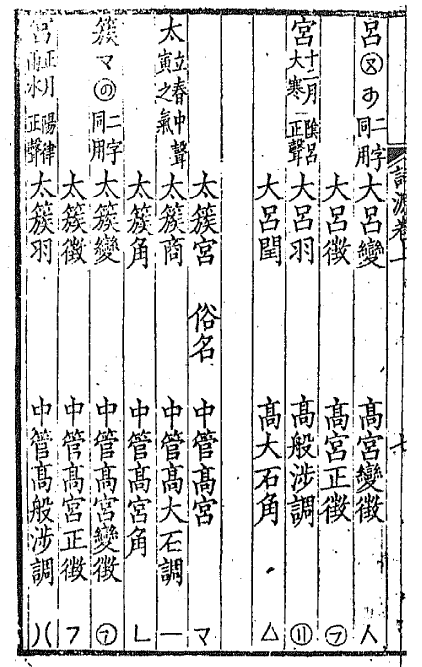 詞源卷上 七
呂 二字同用 大呂變 高宮變徵 人
大呂徵 高宮正徵 ㋐
宮 十二月 陰呂 大寒 正聲 大呂羽 高般涉調 ⑪
大呂閏 高大石角 △
太簇宮 俗名 中管高宮 マ
太 立春中聲 寅之氣 太簇商 中管高大石調 一
太簇角 中管高宮角 ㄴ
簇 マ ⓪ 二字同用 太簇變 中管高宮變徵 ㋐
太簇徵 中管高宮正徵 フ
宮 正月 陽律 雨水 正聲 太簇羽 中管高般涉調 )(